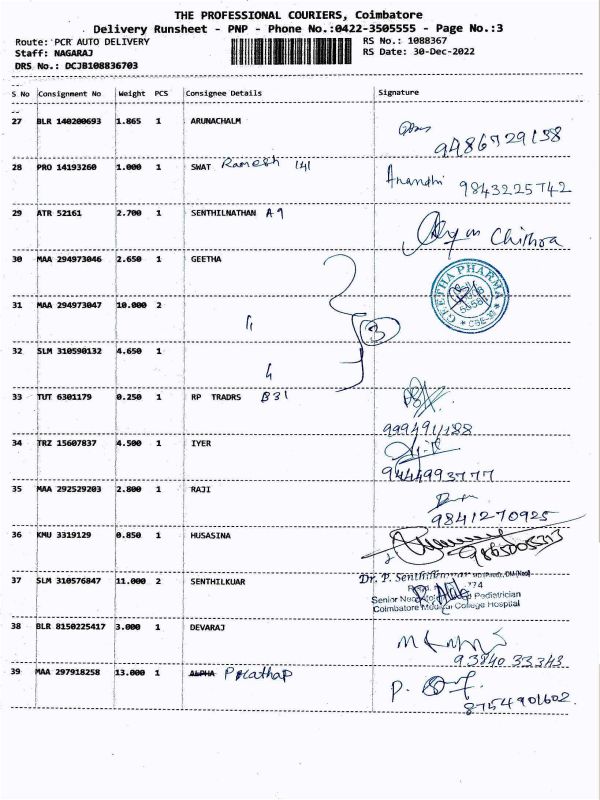 THE PROFESSIONAL COURIERS, Coimbatore
Delivery Runsheet - PNP - Phone No.:0422-3505555 - Page No.:3
Route: PCR AUTO DELIVERY RS No.: 1088367
Staff: NAGARAJ RS Date: 30-Dec-2022
DRS No.: DCJB108836703
S No Consignment No Weight PCS Consignee Details Signature
27 BLR 140200693 1.865 1 ARUNACHALM
9486729138
28 PRO 14193260 1.000 1 SWAT Ramesh 141 Ananthi 9843225742
29 ATR 52161 2.700 1 SENTHILNATHAN A9
Chithra
30 MAA 294973046 2.650 1 GEETHA
GEETHA PHARMA
31 MAA 294973047 10.000 2 〃 3
32 SLM 310590132 4.650 1 〃
33 TUT 6301179 0.250 1 RP TRADRS B31
34 TRZ 15607837 4.500 1 IYER
9444993777
35 MAA 292529203 2.800 1 RAJI
9841270925
36 KMU 3319129 0.850 1 HUSASINA
37 SLM 310576847 11.000 2 SENTHILKUAR
Dr. P. Senthilkumar
Senior Pediatrician
Coimbatore Medical College Hospital
38 BLR 8150225417 3.000 1 DEVARAJ
93840 33343
39 MAA 297918258 13.000 1 ALPHA Prathap
8754901602